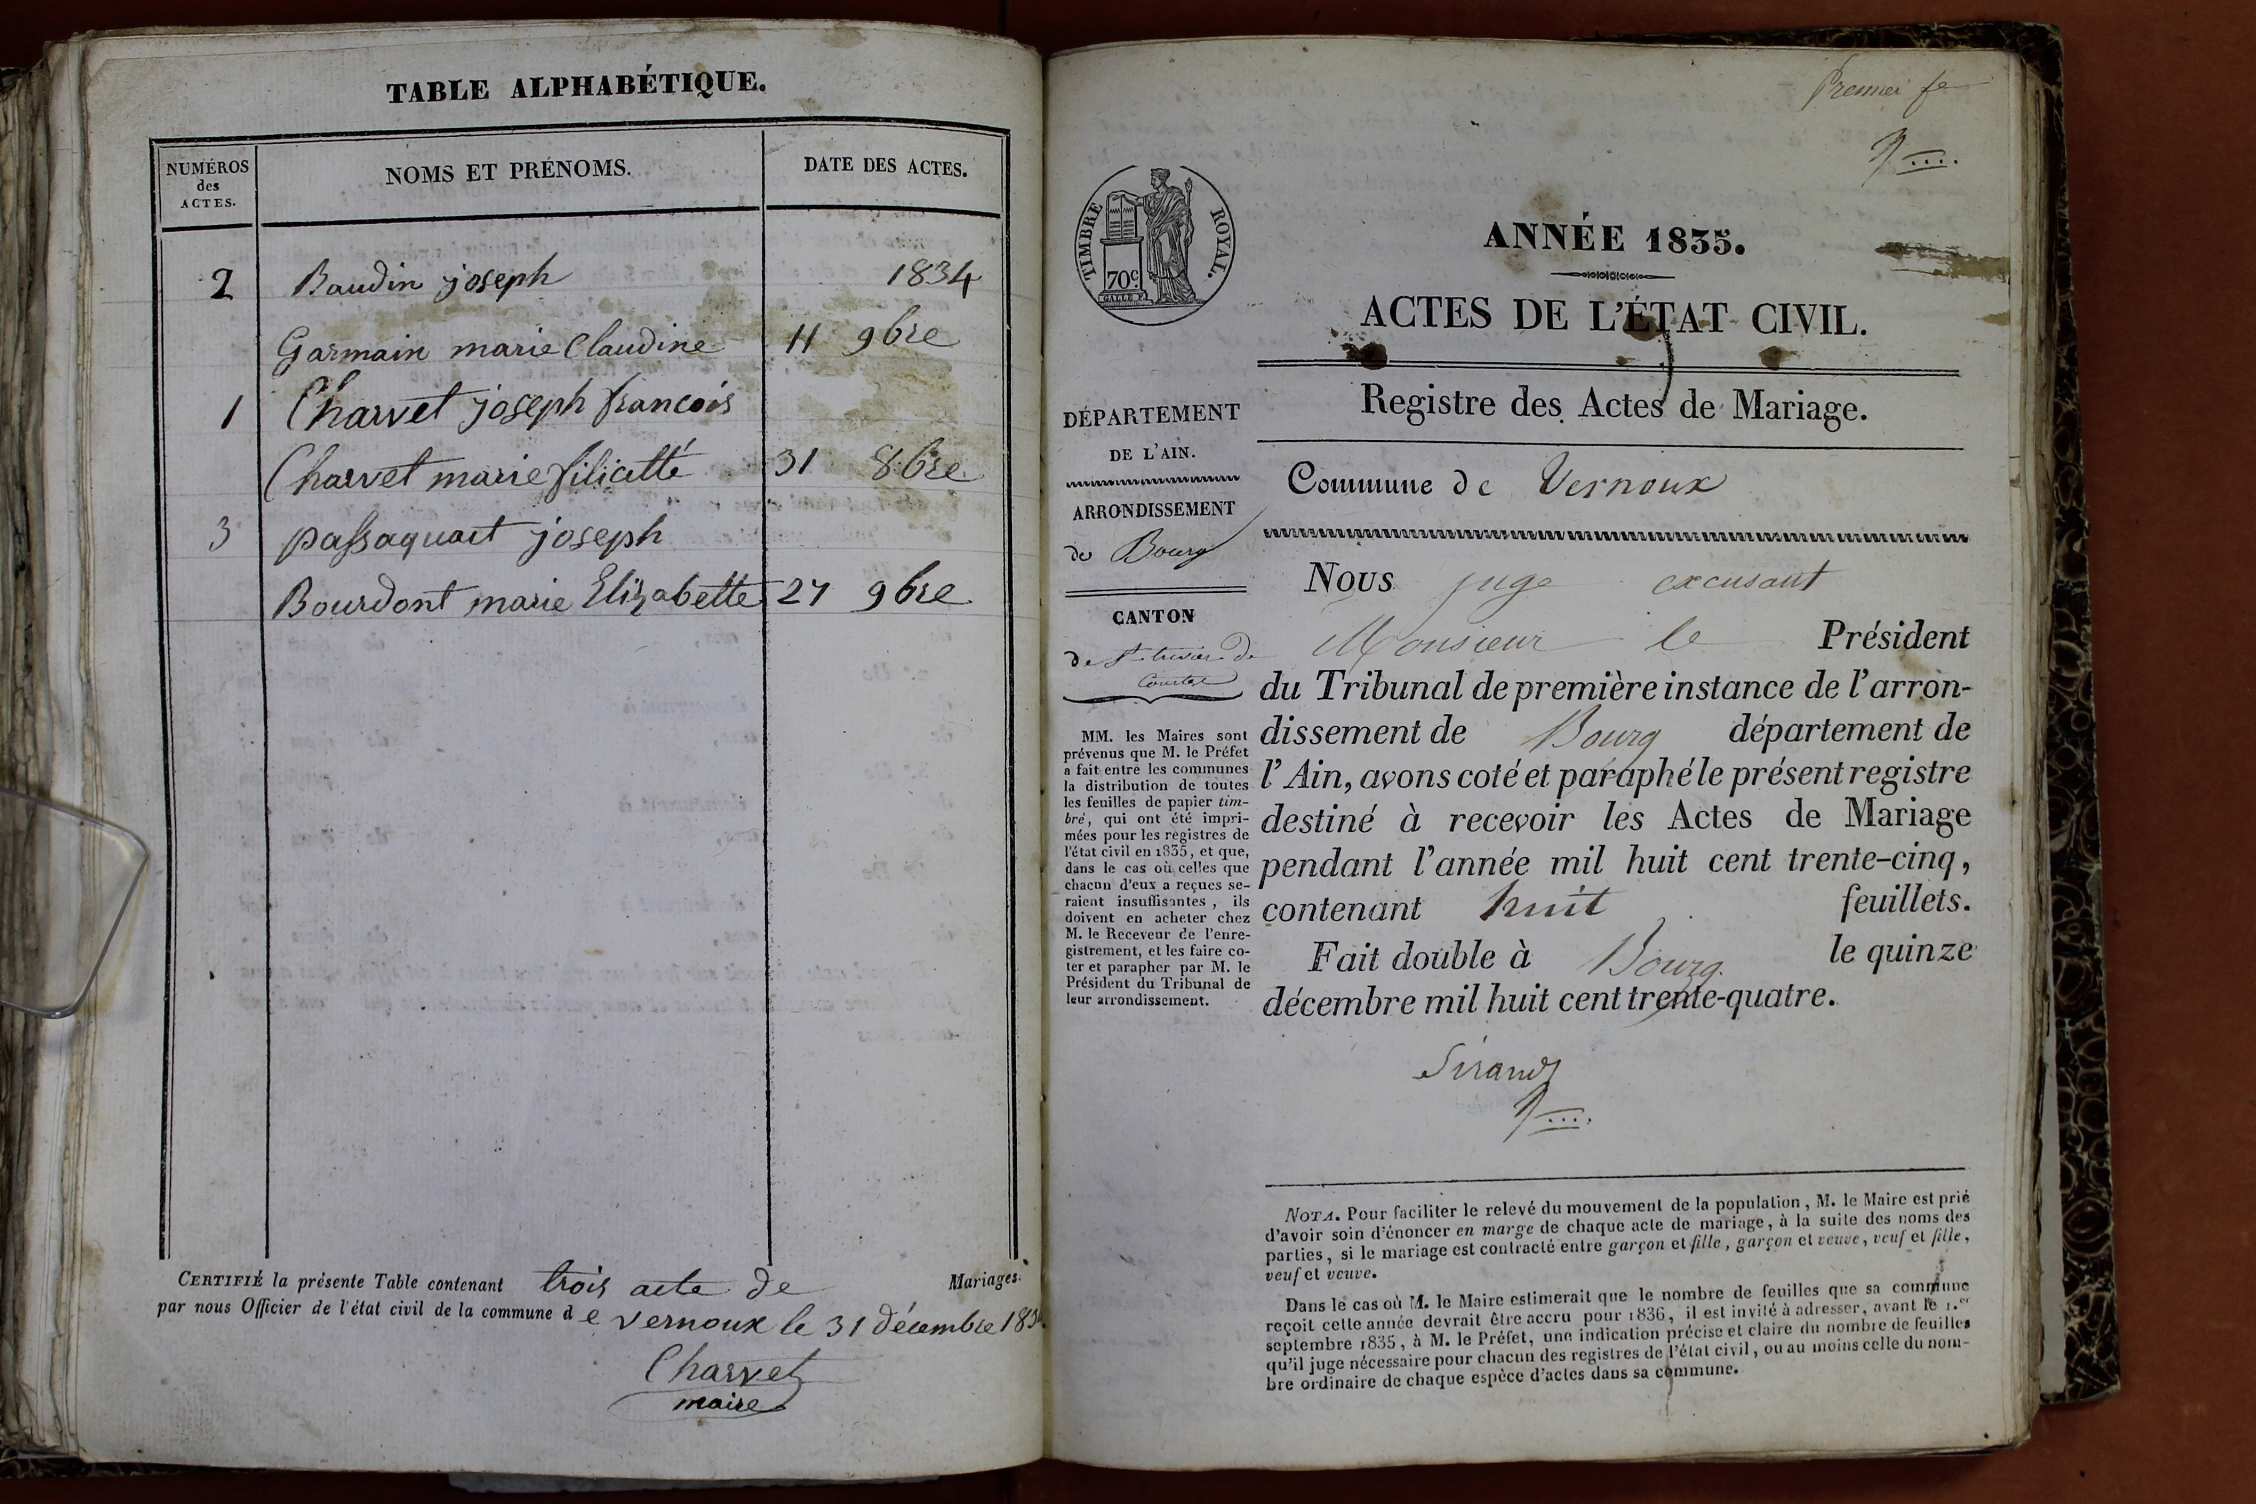 TABLE ALPHABÉTIQUE.
NUMÉROS
des
ACTES.
NOMS ET PRÉNOMS.
DATE DES ACTES.
2 Baudin joseph 1834
Garmain marie Claudine 11 9bre
1 Charvet joseph francois
Charvet marie filicitté 31 8bre
3 passaquait joseph
Bourdont marie Elizabette 27 9bre
CERTIFIÉ la présente Table contenant trois acte de Mariages.
par nous Officier de l'état civil de la commune de vernoux le 31 décembre 1834
Charvet
maire
Premier
TIMBRE ROYAL.
70c.
ANNÉE 1835.
ACTES DE L'ÉTAT CIVIL.
Registre des Actes de Mariage.
DÉPARTEMENT
DE L'AIN.
ARRONDISSEMENT
de Bourg
CANTON
de St trivier de
Courtes
MM. les Maires sont
prévenus que M. le Préfet
a fait entre les communes
la distribution de toutes
les feuilles de papier tim-
bré, qui ont été impri-
mées pour les registres de
l'état civil en 1835, et que,
dans le cas où celles que
chacun d'eux a reçues se-
raient insuffisantes, ils
doivent en acheter chez
M. le Receveur de l'enre-
gistrement, et les faire co-
ter et parapher par M. le
Président du Tribunal de
leur arrondissement.
Commune de Vernoux
Nous juge excusant
Monsieur le Président
du Tribunal de première instance de l'arron-
dissement de Bourg département de
l'Ain, avons coté et paraphé le présent registre
destiné à recevoir les Actes de Mariage
pendant l'année mil huit cent trente-cinq,
contenant huit feuillets.
Fait double à Bourg le quinze
décembre mil huit cent trente-quatre.
Sirand
NOTA. Pour faciliter le relevé du mouvement de la population, M. le Maire est prié
d'avoir soin d'énoncer en marge de chaque acte de mariage, à la suite des noms des
parties, si le mariage est contracté entre garçon et fille, garçon et veuve, veuf et fille,
veuf et veuve.
Dans le cas où M. le Maire estimerait que le nombre de feuilles que sa commune
reçoit cette année devrait être accru pour 1836, il est invité à adresser, avant le 1.er
septembre 1835, à M. le Préfet, une indication précise et claire du nombre de feuilles
qu'il juge nécessaire pour chacun des registres de l'état civil, ou au moins celle du nom-
bre ordinaire de chaque espèce d'actes dans sa commune.